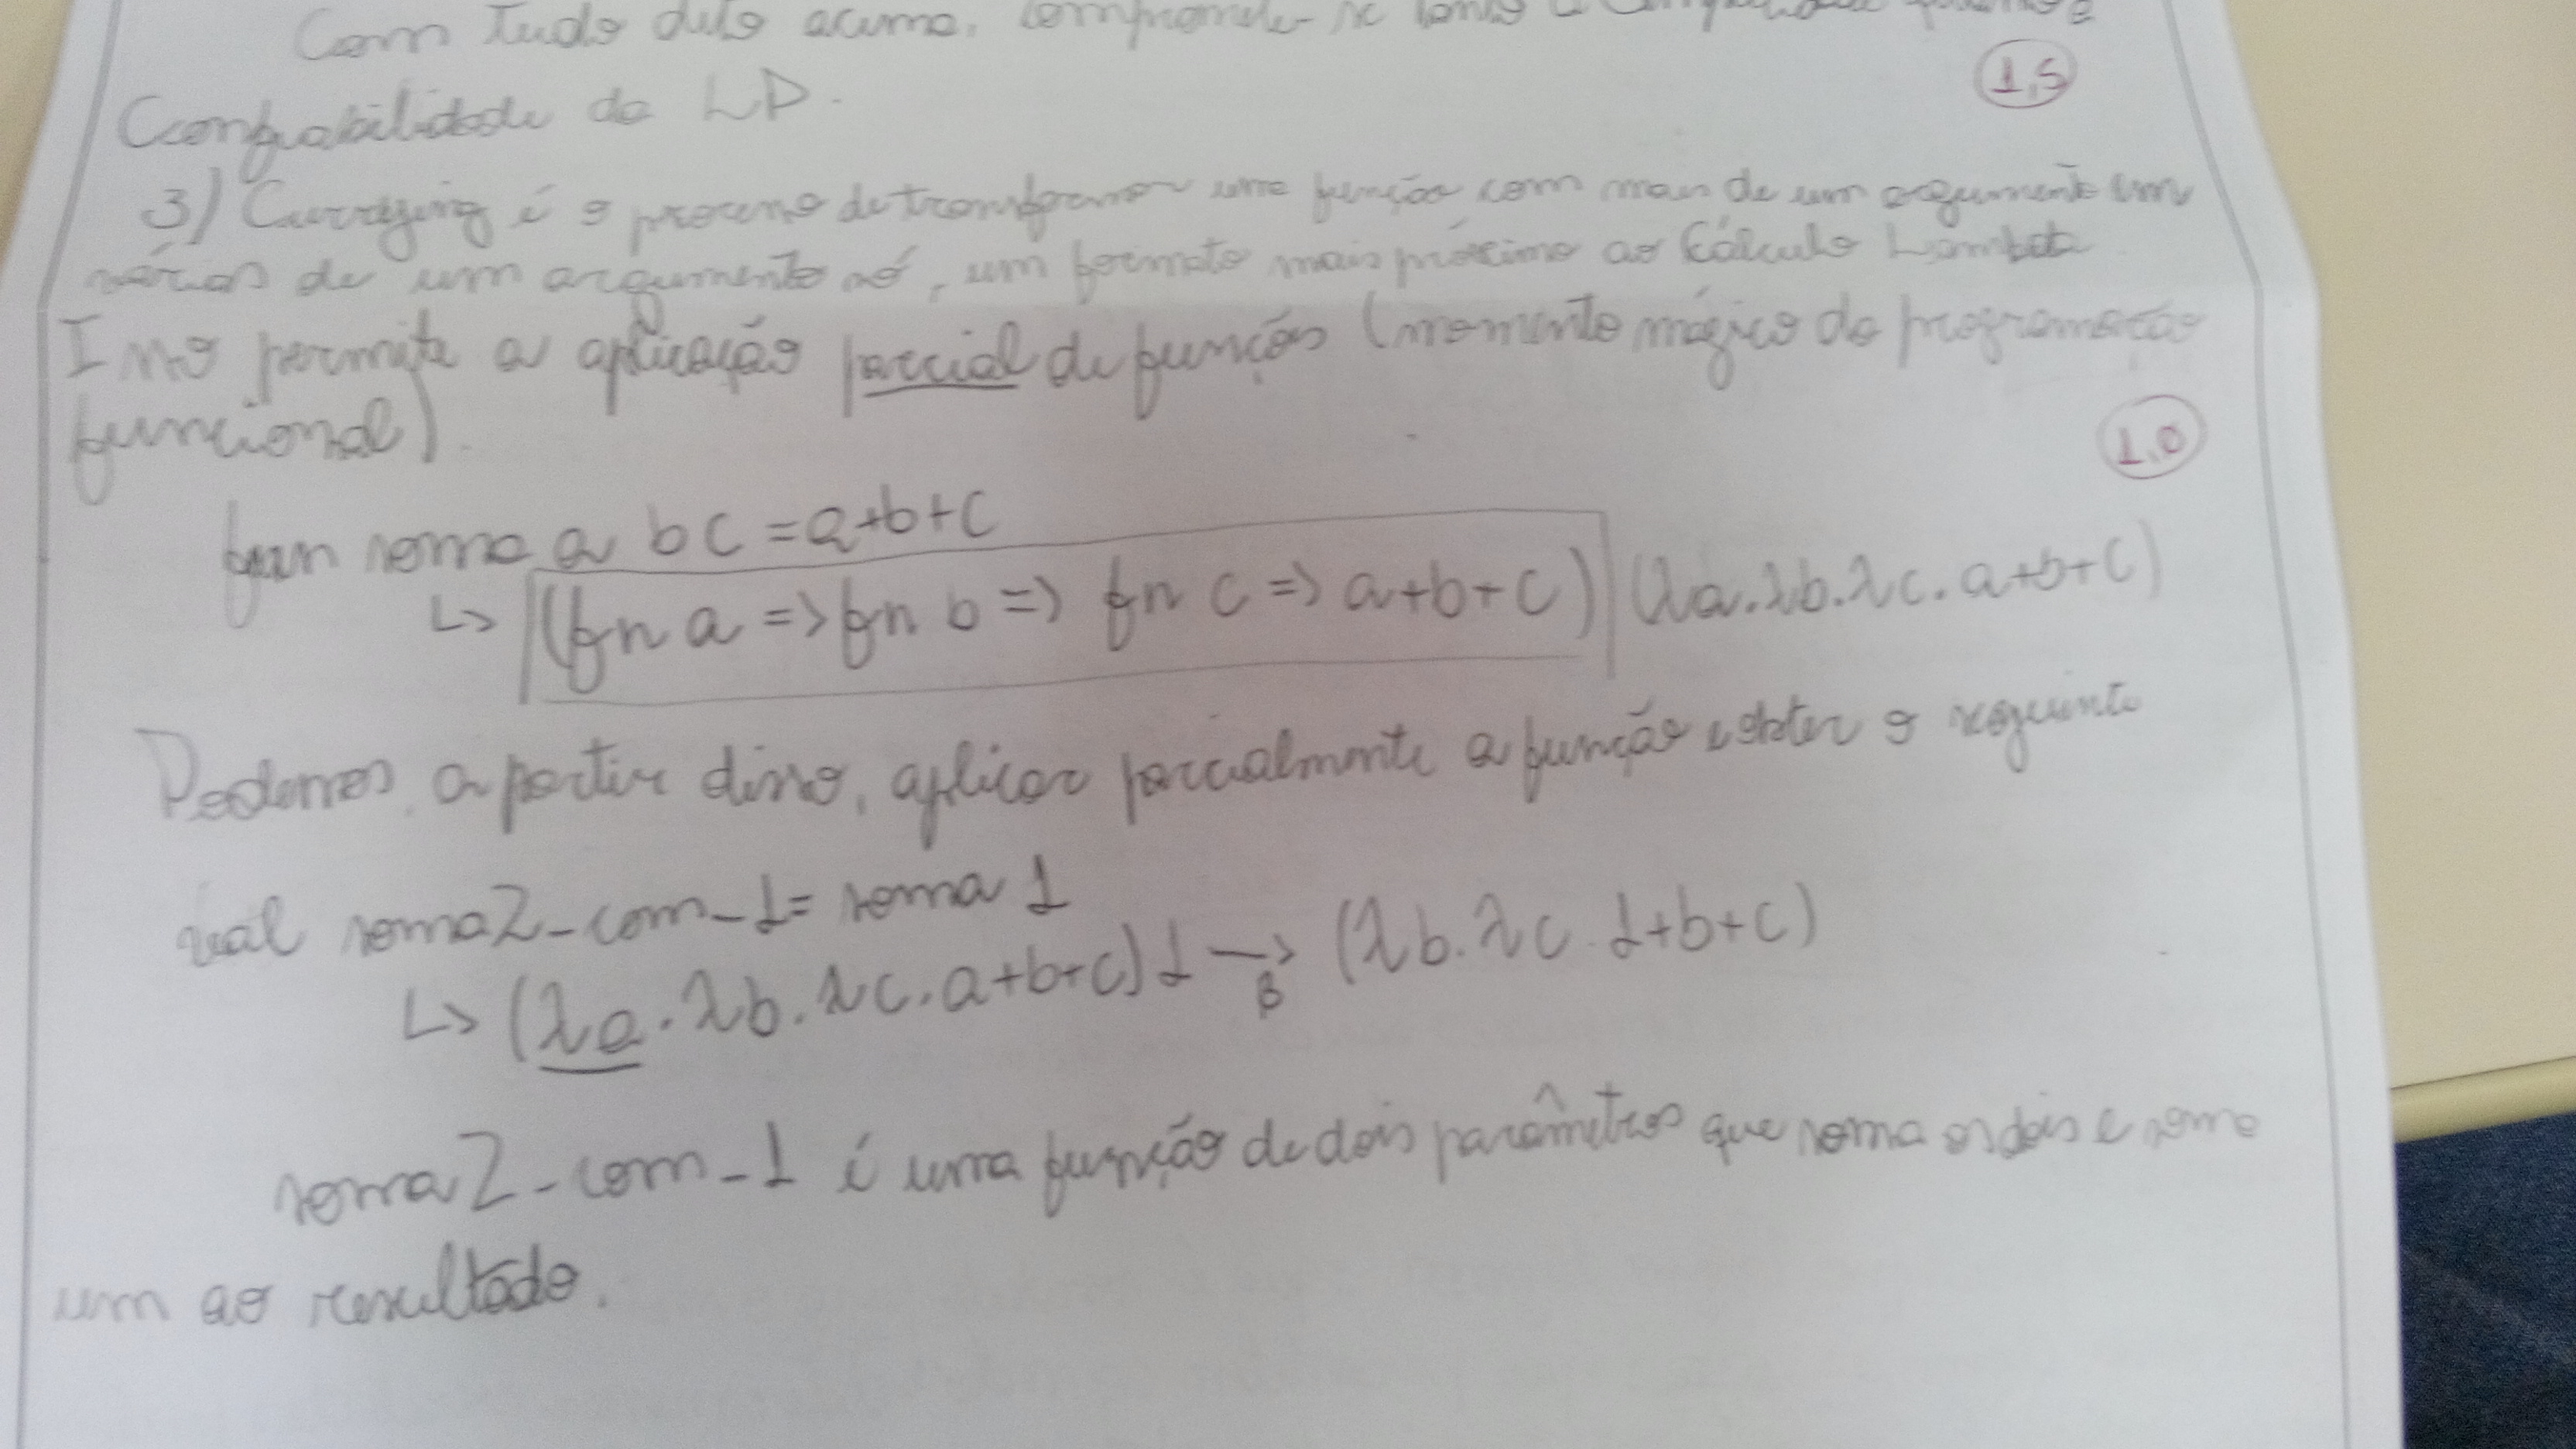 Com tudo dito acima, compromete-se tanto a
1,5
Confiabilidade da LP.
3) Currying é o processo de transformar uma função com mais de um argumento em
várias de um argumento só, um formato mais próximo ao Cálculo Lambda
Isso permite a aplicação parcial de funções (momento mágico da programação
funcional).
1,0
fun soma a b c = a+b+c
↳ (fn a => fn b => fn c => a+b+c) (λa.λb.λc.a+b+c)
Podemos, a partir disso, aplicar parcialmente a função e obter o seguinte
val soma2_com_1 = soma 1
↳ (λa.λb.λc.a+b+c) 1 →β (λb.λc.1+b+c)
soma2_com_1 é uma função de dois parâmetros que soma os dois e soma
um ao resultado.